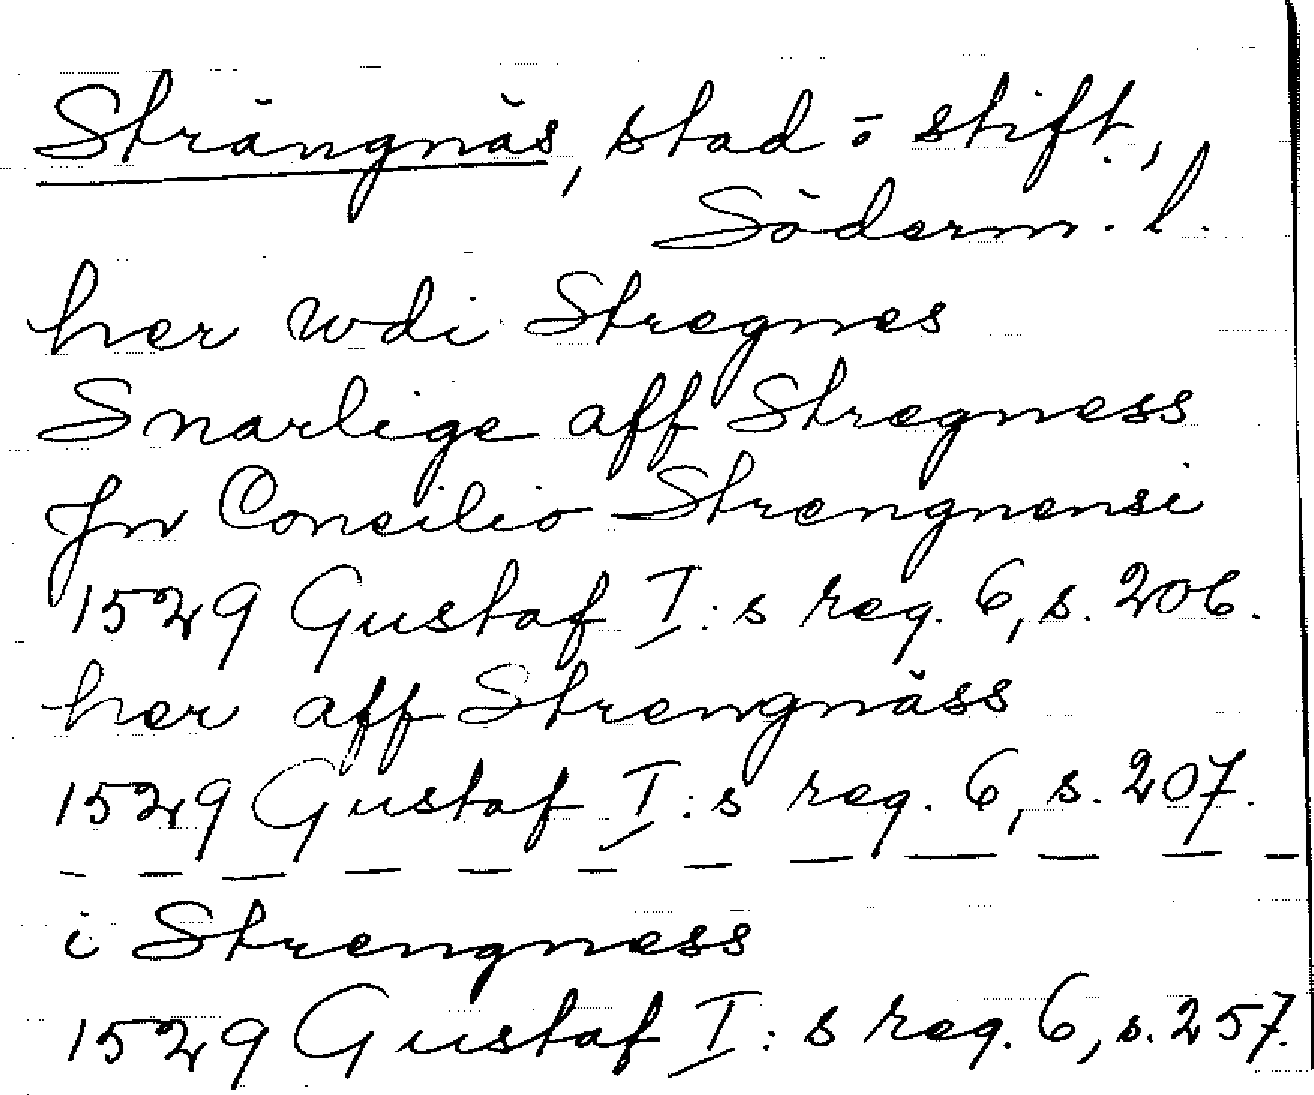 Strängnäs, stad o stift.,
Söderm. l.
her wdi Stregnes
Snarlige aff Stregness
Jn Concilio Strengnensi
1529 Gustaf I:s reg. 6, s. 206.
her aff Strengnäss
1529 Gustaf I:s reg. 6, s. 207.
i Strengness
1529 Gustaf I:s reg. 6, s. 257.